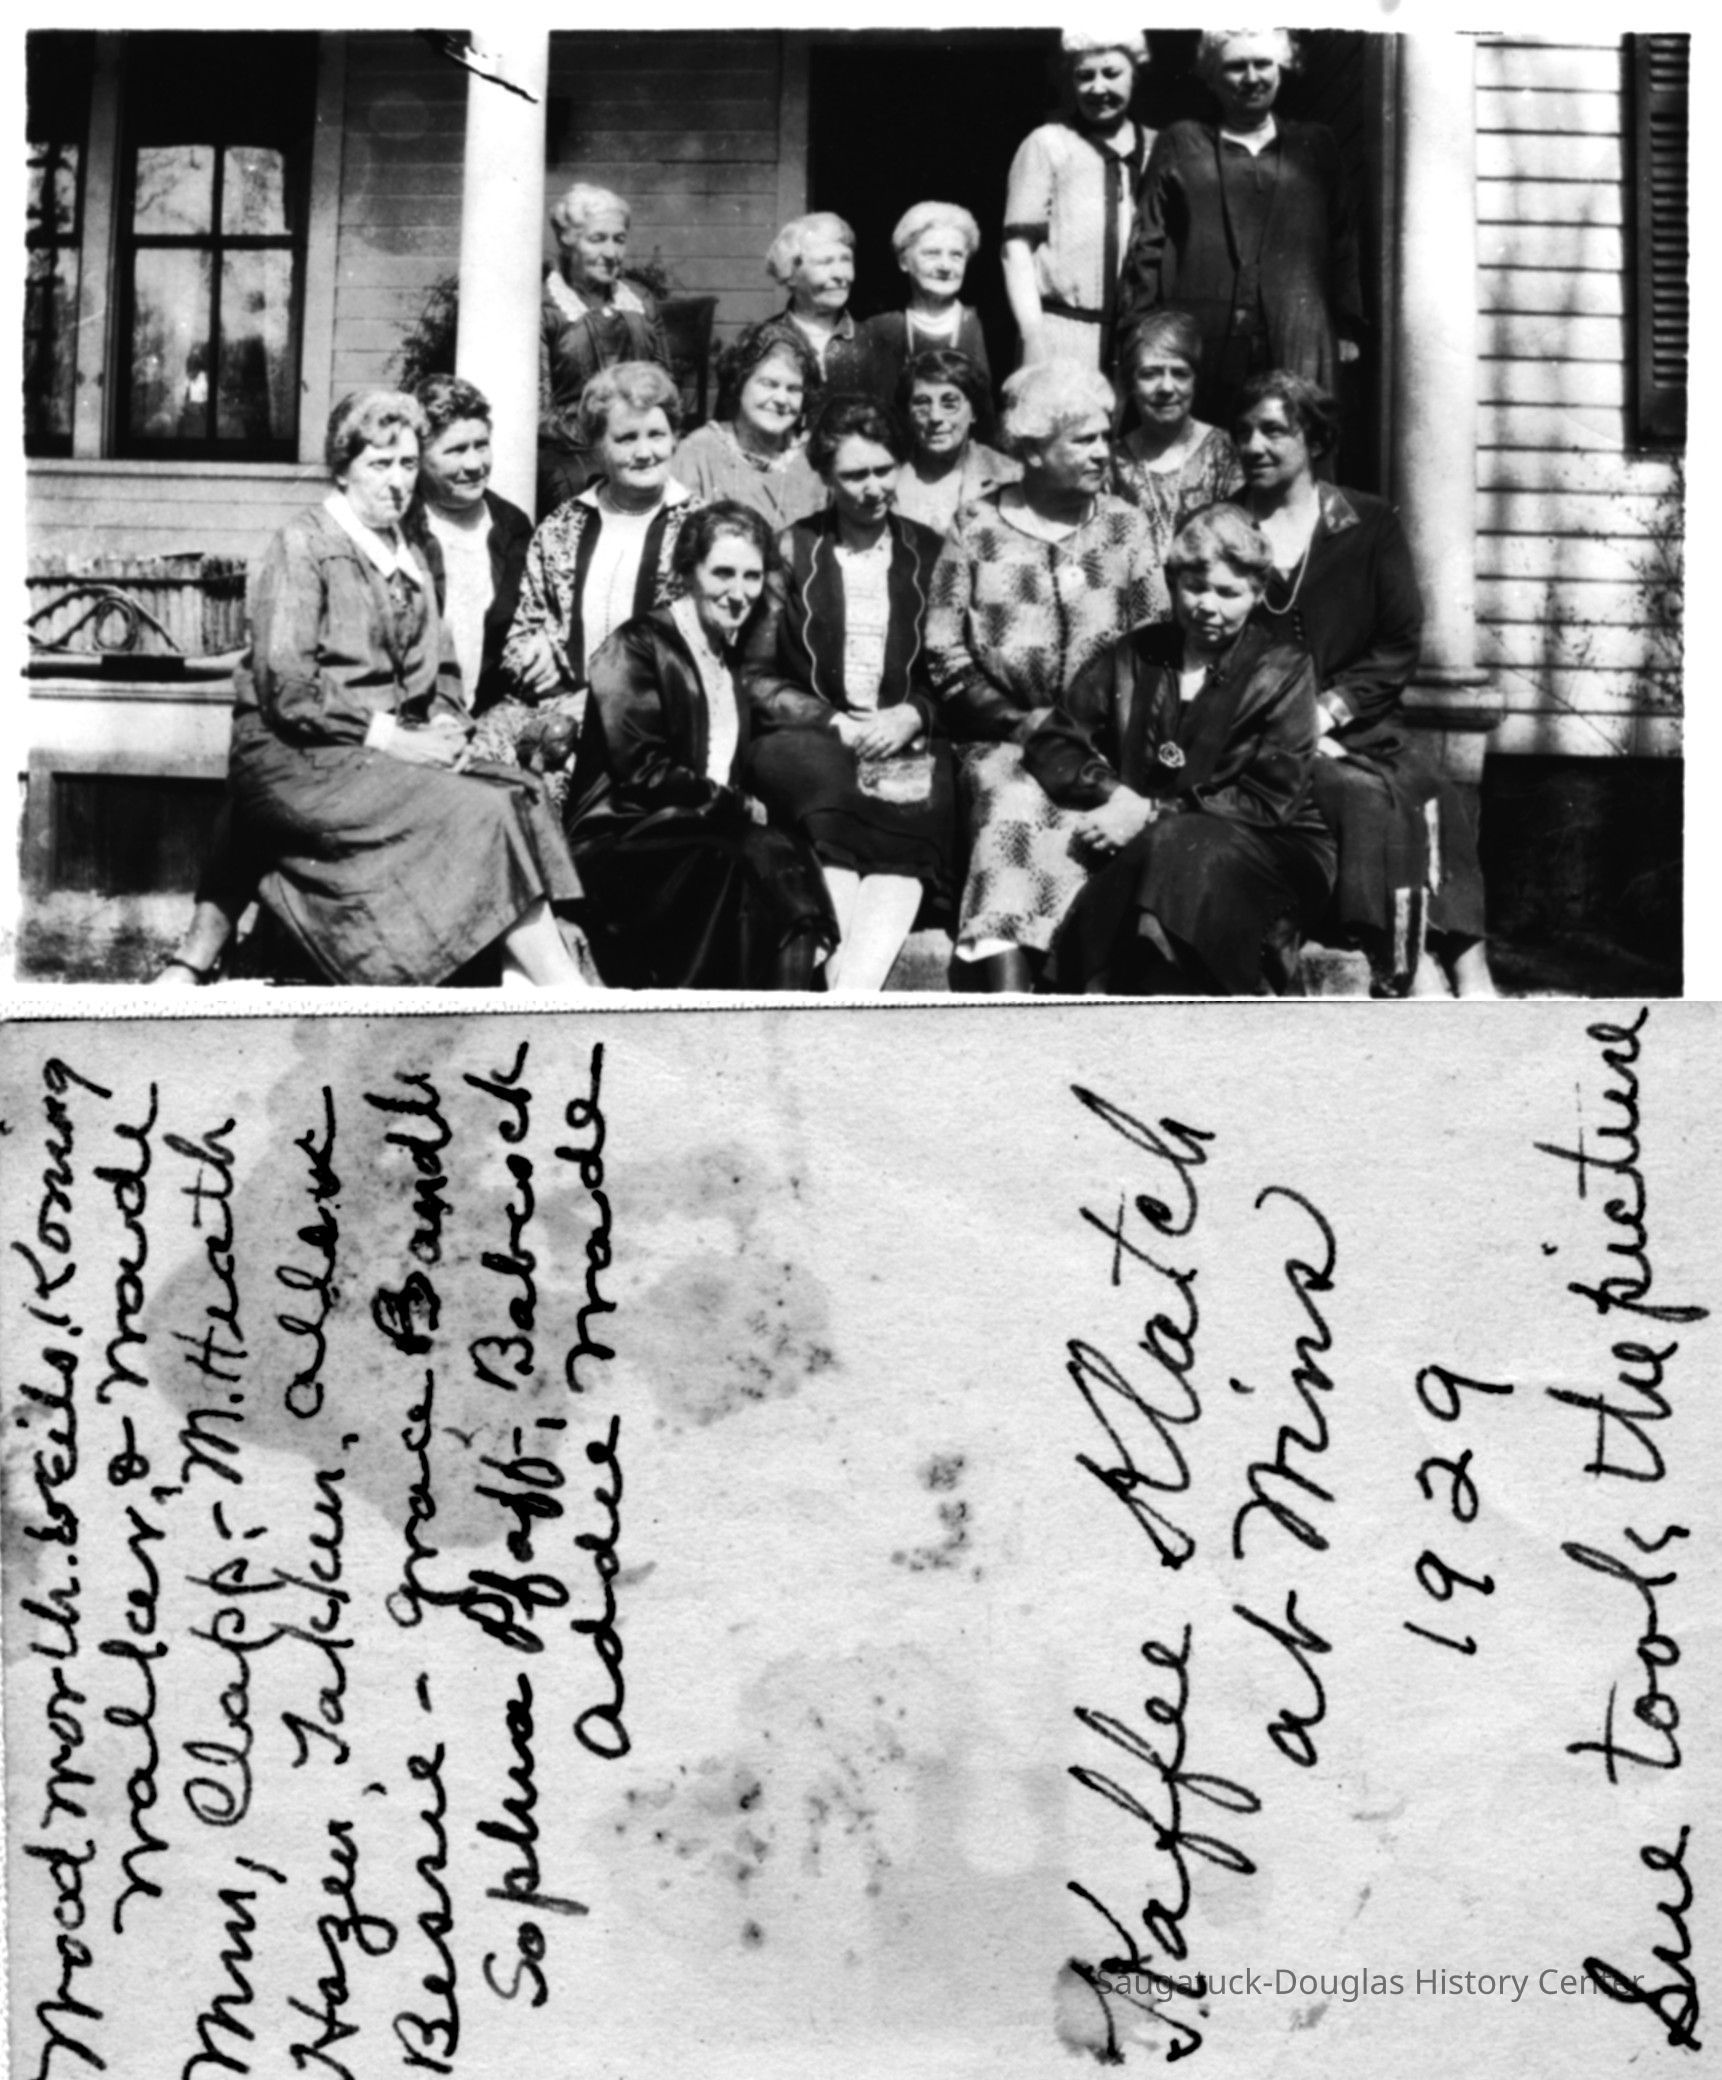 Woodworth. Weils. Koning
Walker, & Wade
Mrs, Clapp- M. Heath
Hazen, Takken, allen
Bessie - grace Bandle
Sophua Pfaff, Babcock
addie Wade
Kaffee Klatch
at Mins
1929
Sue took the picture
Saugatuck-Douglas History Center